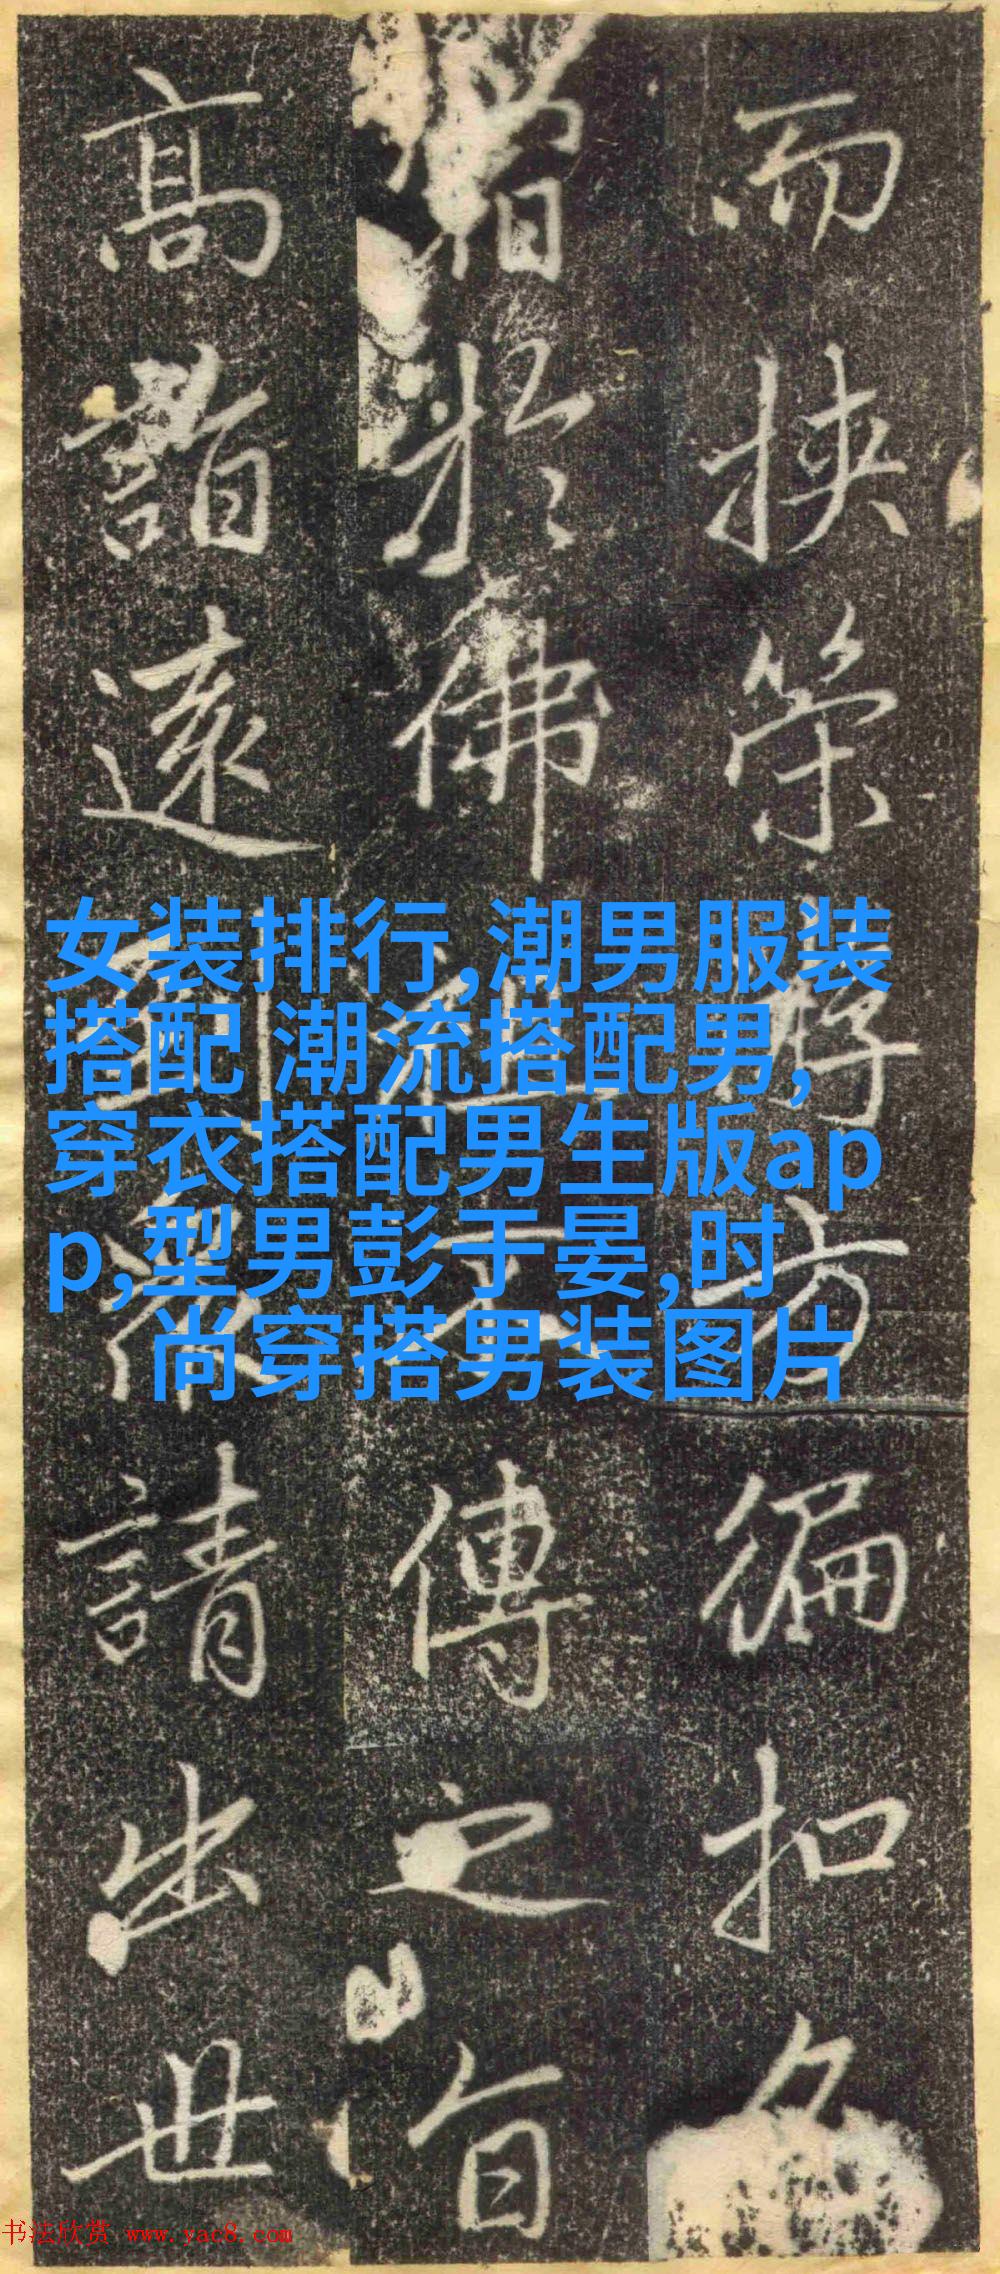 而挾策方徧扣
於佛祖不傳之旨
高詣遠到衆請出世
女装排行,潮男服装
搭配 潮流搭配男,
穿衣搭配男生版ap
p,型男彭于晏,时
尚穿搭男装图片
书法欣赏 www.yac8.com